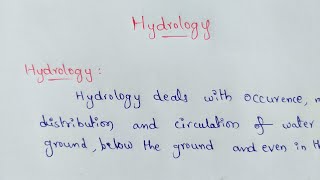 Hydrology
Hydrology :
Hydrology deals with occurence,
distribution and circulation of water
ground, below the ground and even in